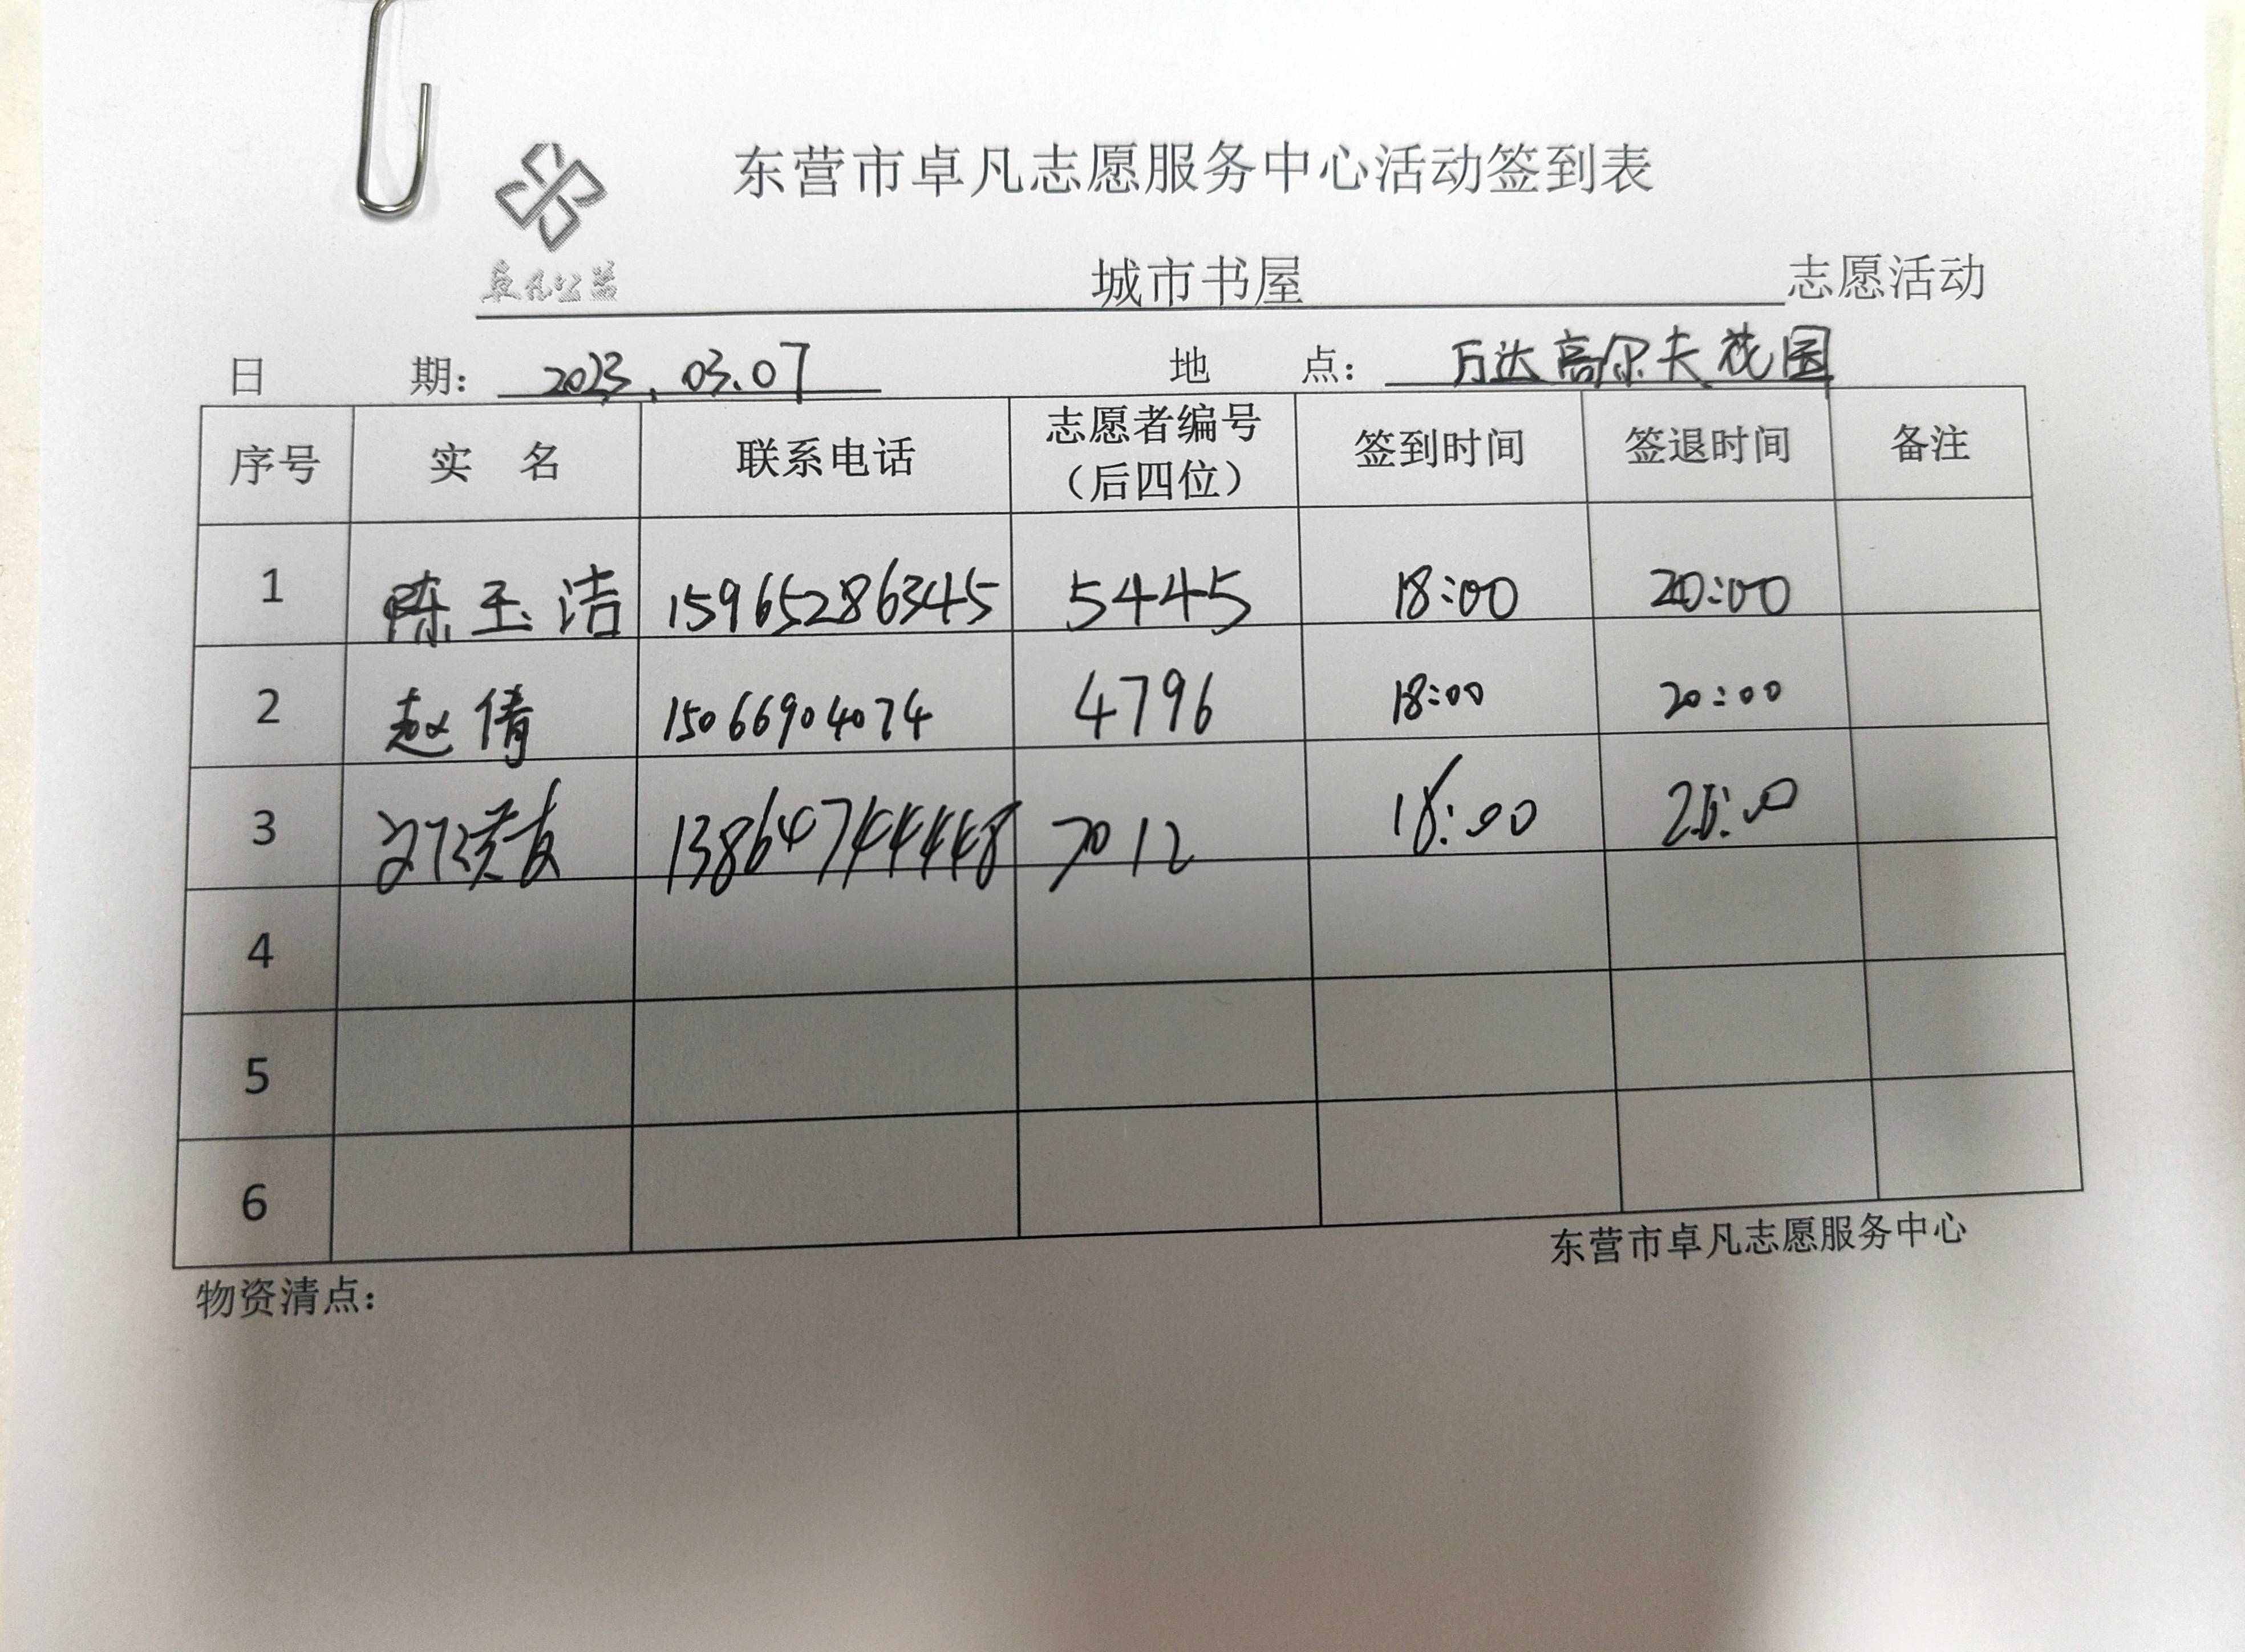 东营市卓凡志愿服务中心活动签到表
卓凡公益
城市书屋 志愿活动
日 期： 2023.03.07 地 点： 万达高尔夫花园
序号 实 名 联系电话 志愿者编号（后四位） 签到时间 签退时间 备注
1 陈玉洁 15965286345 5445 18:00 20:00
2 赵倩 15066904074 4796 18:00 20:00
3 13864744448 7012 18:00
4
5
6
东营市卓凡志愿服务中心
物资清点：